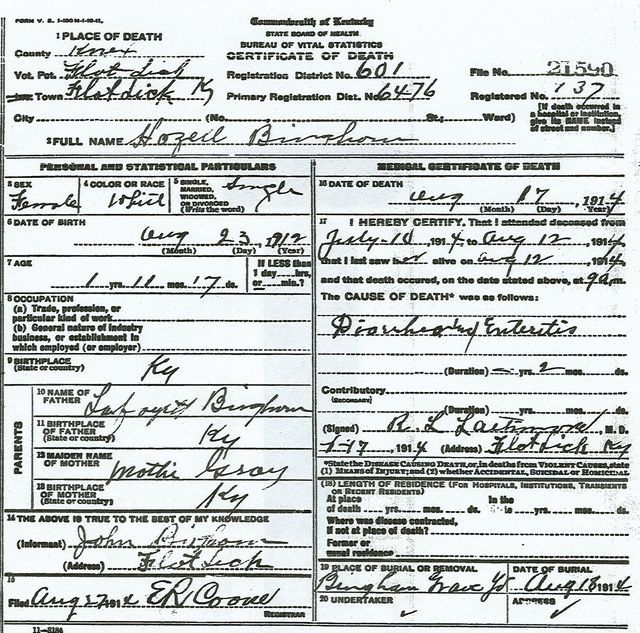 FORM V. S. 1-100 M-1-10-11.
Commonwealth of Kentucky
STATE BOARD OF HEALTH.
BUREAU OF VITAL STATISTICS
CERTIFICATE OF DEATH
1 PLACE OF DEATH
County Knox
Vot. Pct. Flat Lick
Town Flat Lick Ky
Registration District No. 601
File No. 21590
Primary Registration Dist. No. 6476
Registered No. 137
City (No. St.; Ward)
[If death occurred in a hospital or institution, give its NAME instead of street and number.]
2 FULL NAME Hozell Bingham
PERSONAL AND STATISTICAL PARTICULARS
3 SEX
Female
4 COLOR OR RACE
Whit
5 SINGLE, MARRIED, WIDOWED, OR DIVORCED (Write the word)
Single
6 DATE OF BIRTH
Aug 23, 1912
(Month) (Day) (Year)
7 AGE
1 yrs. 11 mos. 17 ds.
If LESS than 1 day ___ hrs. or ___ min.?
8 OCCUPATION
(a) Trade, profession, or particular kind of work
(b) General nature of industry business, or establishment in which employed (or employer)
9 BIRTHPLACE (State or country)
Ky
PARENTS
10 NAME OF FATHER
Bingham
11 BIRTHPLACE OF FATHER (State or country)
Ky
12 MAIDEN NAME OF MOTHER
Gray
13 BIRTHPLACE OF MOTHER (State or country)
Ky
14 THE ABOVE IS TRUE TO THE BEST OF MY KNOWLEDGE
(Informant) John
(Address) Flat Lick
15
Filed Aug 27, 1914 ER
REGISTRAR
11-3184
MEDICAL CERTIFICATE OF DEATH
16 DATE OF DEATH
Aug 17, 1914
(Month) (Day) (Year)
17 I HEREBY CERTIFY, That I attended deceased from
July-10, 1914, to Aug 12, 1914,
that I last saw her alive on Aug 12, 1914,
and that death occurred, on the date stated above, at 9 a m.
The CAUSE OF DEATH* was as follows:
Enteritis
(Duration) yrs. 2 mos. ds.
Contributory
(SECONDARY)
(Duration) yrs. mos. ds.
(Signed) R. L. M. D.
1914 (Address) Flat Lick Ky
*State the DISEASE CAUSING DEATH, or, in deaths from VIOLENT CAUSES, state (1) MEANS OF INJURY; and (2) whether ACCIDENTAL, SUICIDAL or HOMICIDAL
(18) LENGTH OF RESIDENCE (FOR HOSPITALS, INSTITUTIONS, TRANSIENTS OR RECENT RESIDENTS)
At place of death yrs. mos. ds. In the yrs. mos. ds.
Where was disease contracted, If not at place of death?
Former or usual residence
19 PLACE OF BURIAL OR REMOVAL
Bingham Grave Yd
DATE OF BURIAL
Aug 18, 1914
20 UNDERTAKER
ADDRESS